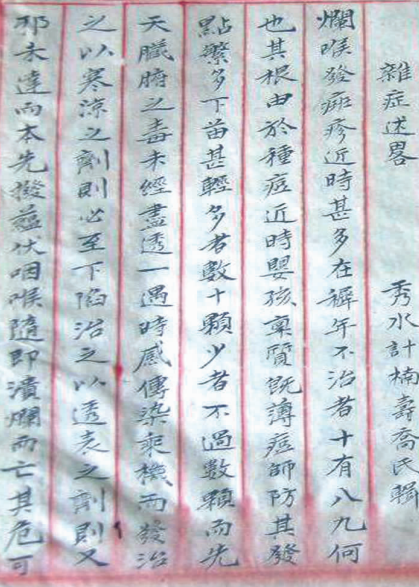 雜症述畧　秀水計楠壽喬氏輯
爛喉發痧疹近時甚多在稺年不治者十有八九何
也其根由於種痘近時嬰孩稟質旣薄痘師防其發
點繁多下苗甚輕多者數十顆少者不過數顆而先
天臟腑之毒未經盡透一遇時感傳染乘機而發治
之以寒涼之劑則必至下陷治之以透表之劑則又
邪未達而本先撥蘊伏咽喉隨即潰爛而亡其危可